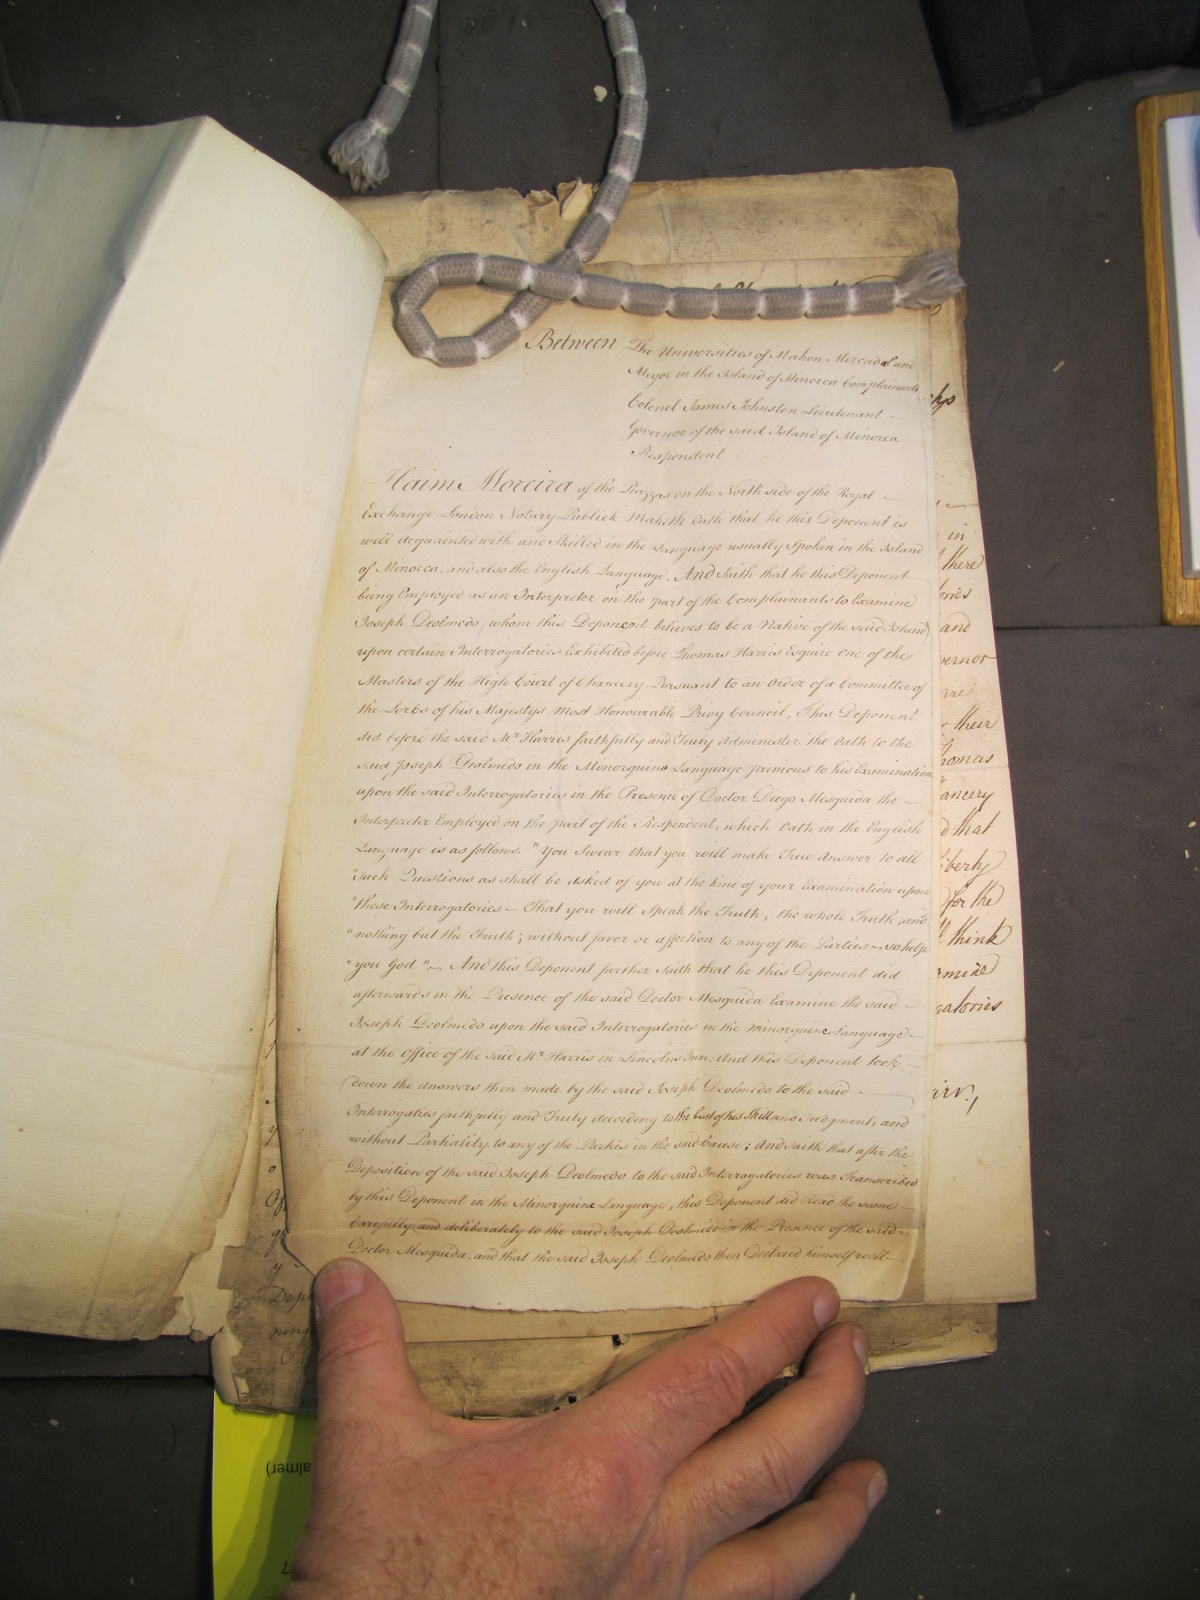 Between The Universities of Mahon Mercadal and
Alayor in the Island of Minorca Complainants
Colonel James Johnston Lieutenant
Governor of the said Island of Minorca
Respondent
Haim Moreira of the Piazzas on the North side of the Royal
Exchange London Notary Publick Maketh Oath that he this Deponent is
well acquainted with and Skilled in the Language usually Spoken in the Island
of Minorca, and also the English Language. And Saith that he this Deponent
being Employed as an Interpreter on the part of the Complainants to Examine
Joseph Deolmedo, whom this Deponent believes to be a Native of the said Island
upon certain Interrogatories Exhibited before Thomas Harris Esquire one of the
Masters of the High Court of Chancery Pursuant to an Order of a Committee of
the Lords of his Majestys Most Honourable Privy Council, This Deponent
did before the said Mr Harris faithfully and Truly Administer the Oath to the
said Joseph Deolmedo in the Minorquine Language previous to his Examination
upon the said Interrogatories in the Presence of Doctor Diego Mesquida the
Interpreter Employed on the part of the Respondent, which Oath in the English
Language is as follows. "You Swear that you will make True Answer to all
"Such Questions as shall be asked of you at the time of your Examination upon
"these Interrogatories - That you will Speak the Truth, the whole Truth, and
"nothing but the Truth; without favor or affection to any of the Parties - so help
"you God" - And this Deponent further Saith that he this Deponent did
afterwards in the Presence of the said Doctor Mesquida Examine the said
Joseph Deolmedo upon the said Interrogatories in the Minorquine Language
at the Office of the said Mr Harris in Lincolns Inn; And this Deponent took
down the Answers then made by the said Joseph Deolmedo to the said
Interrogaties faithfully and Truly according to the best of his Skill and Judgment, and
without Partiality to any of the Parties in the said Cause; And Saith that after the
Deposition of the said Joseph Deolmedo to the said Interrogatories was Transcribed
by this Deponent in the Minorquine Language, this Deponent did read the same
Carefully and deliberately to the said Joseph Deolmedo in the Presence of the said
Doctor Mesquida, and that the said Joseph Deolmedo then Declared himself well
in
there
and
their
that
for the
think
almer)